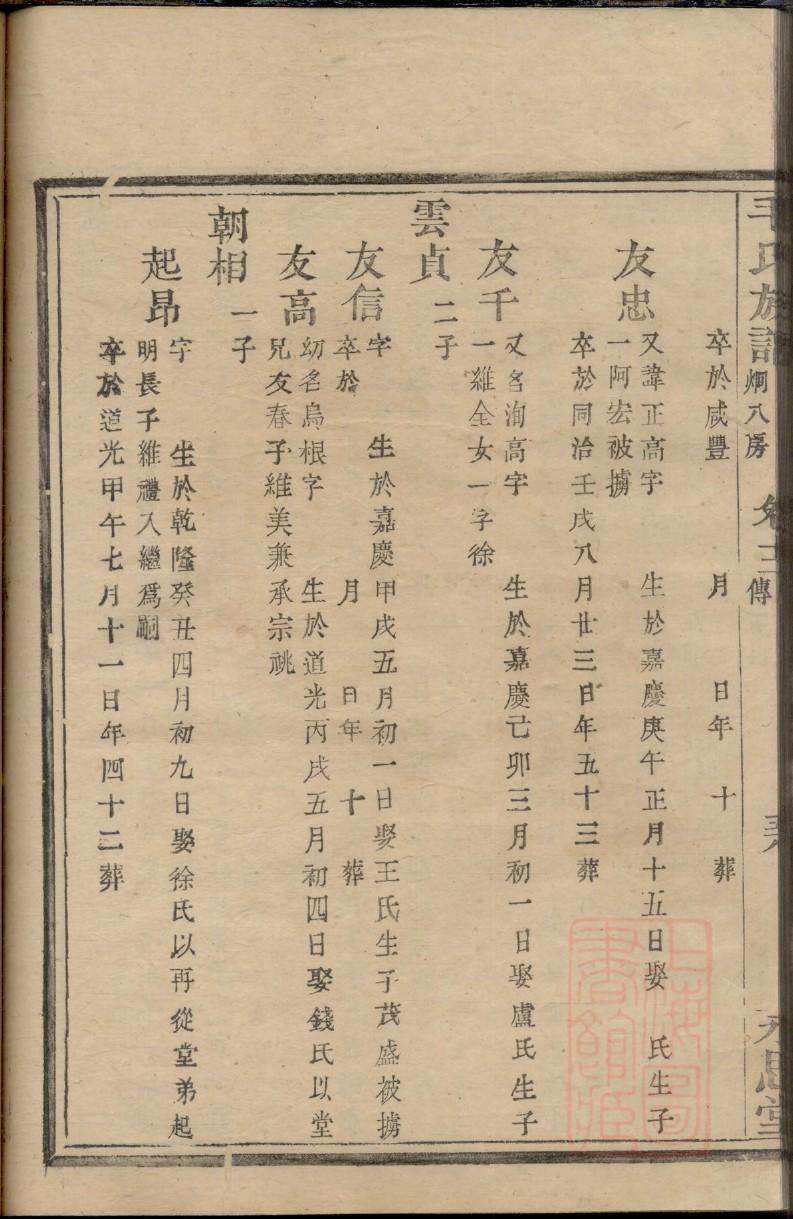 毛氏族譜 炯八房 卷三 傳 永思堂
卒於咸豐 月 日年 十 葬
友忠
又諱正高字 生於嘉慶庚午正月十五日娶 氏生子
一阿宏被擄
卒於同治壬戌八月廿三日年五十三葬
友千
又名洵高字 生於嘉慶己卯三月初一日娶盧氏生子
一維全女一字徐
雲貞 二子
友信
字 生於嘉慶甲戌五月初一日娶王氏生子茂盛被擄
卒於 月 日年 十 葬
友高
幼名烏根字 生於道光丙戌五月初四日娶錢氏以堂
兄友春子維美兼承宗祧
朝相 一子
起昂
字 生於乾隆癸丑四月初九日娶徐氏以再從堂弟起
明長子維禮入繼為嗣
卒於道光甲午七月十一日年四十二葬